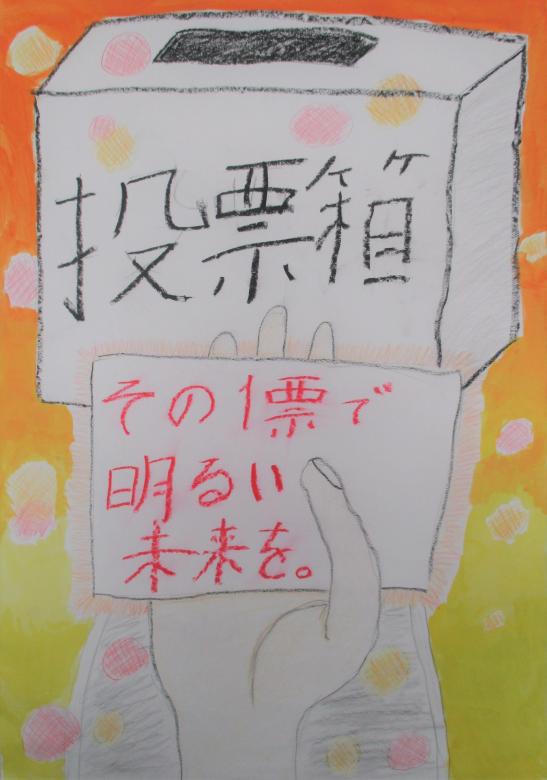 投票箱
その1票で
明るい
未来を。